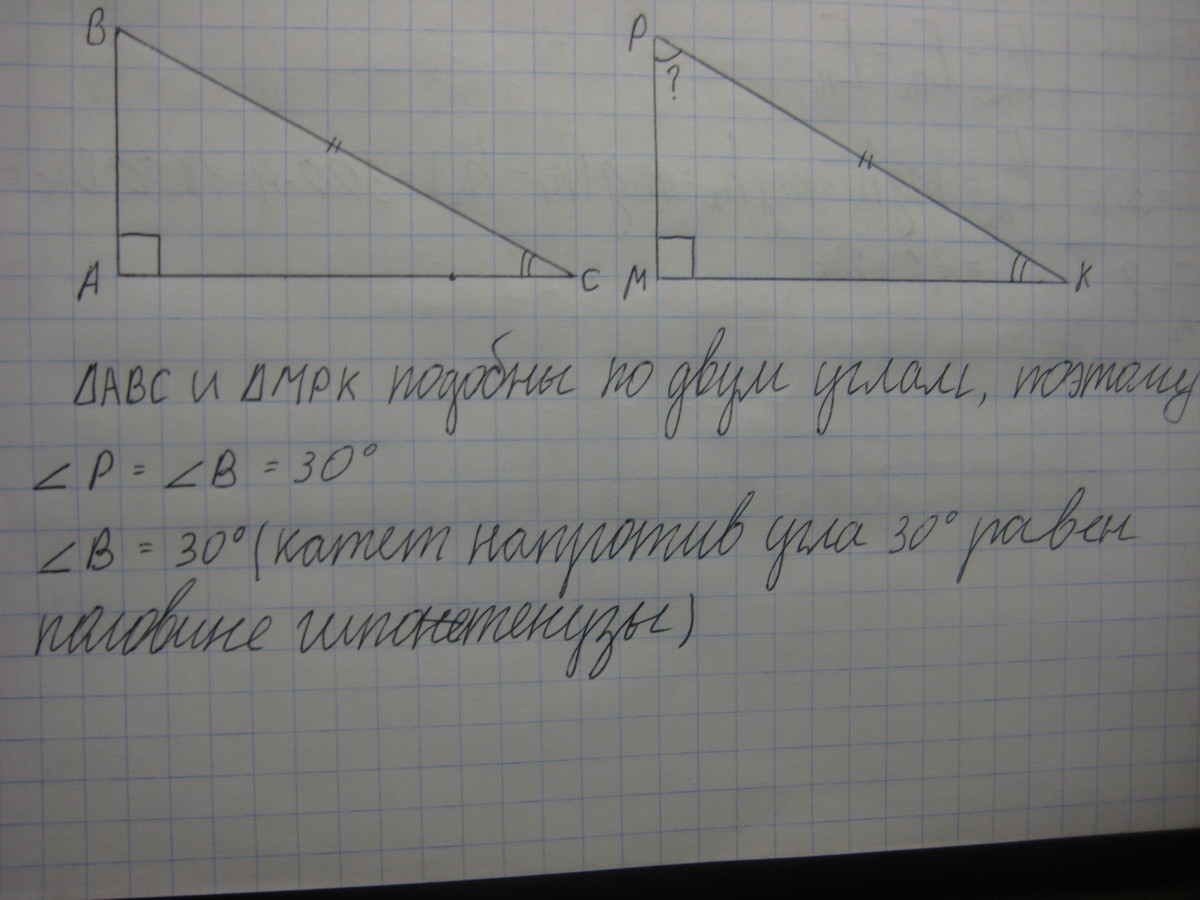 B
P
?
A
C
M
K
ΔABC и ΔMPK подобны по двум углам, поэтому
∠P = ∠B = 30°
∠B = 30° (катет напротив угла 30° равен
половине гипонетенузы)